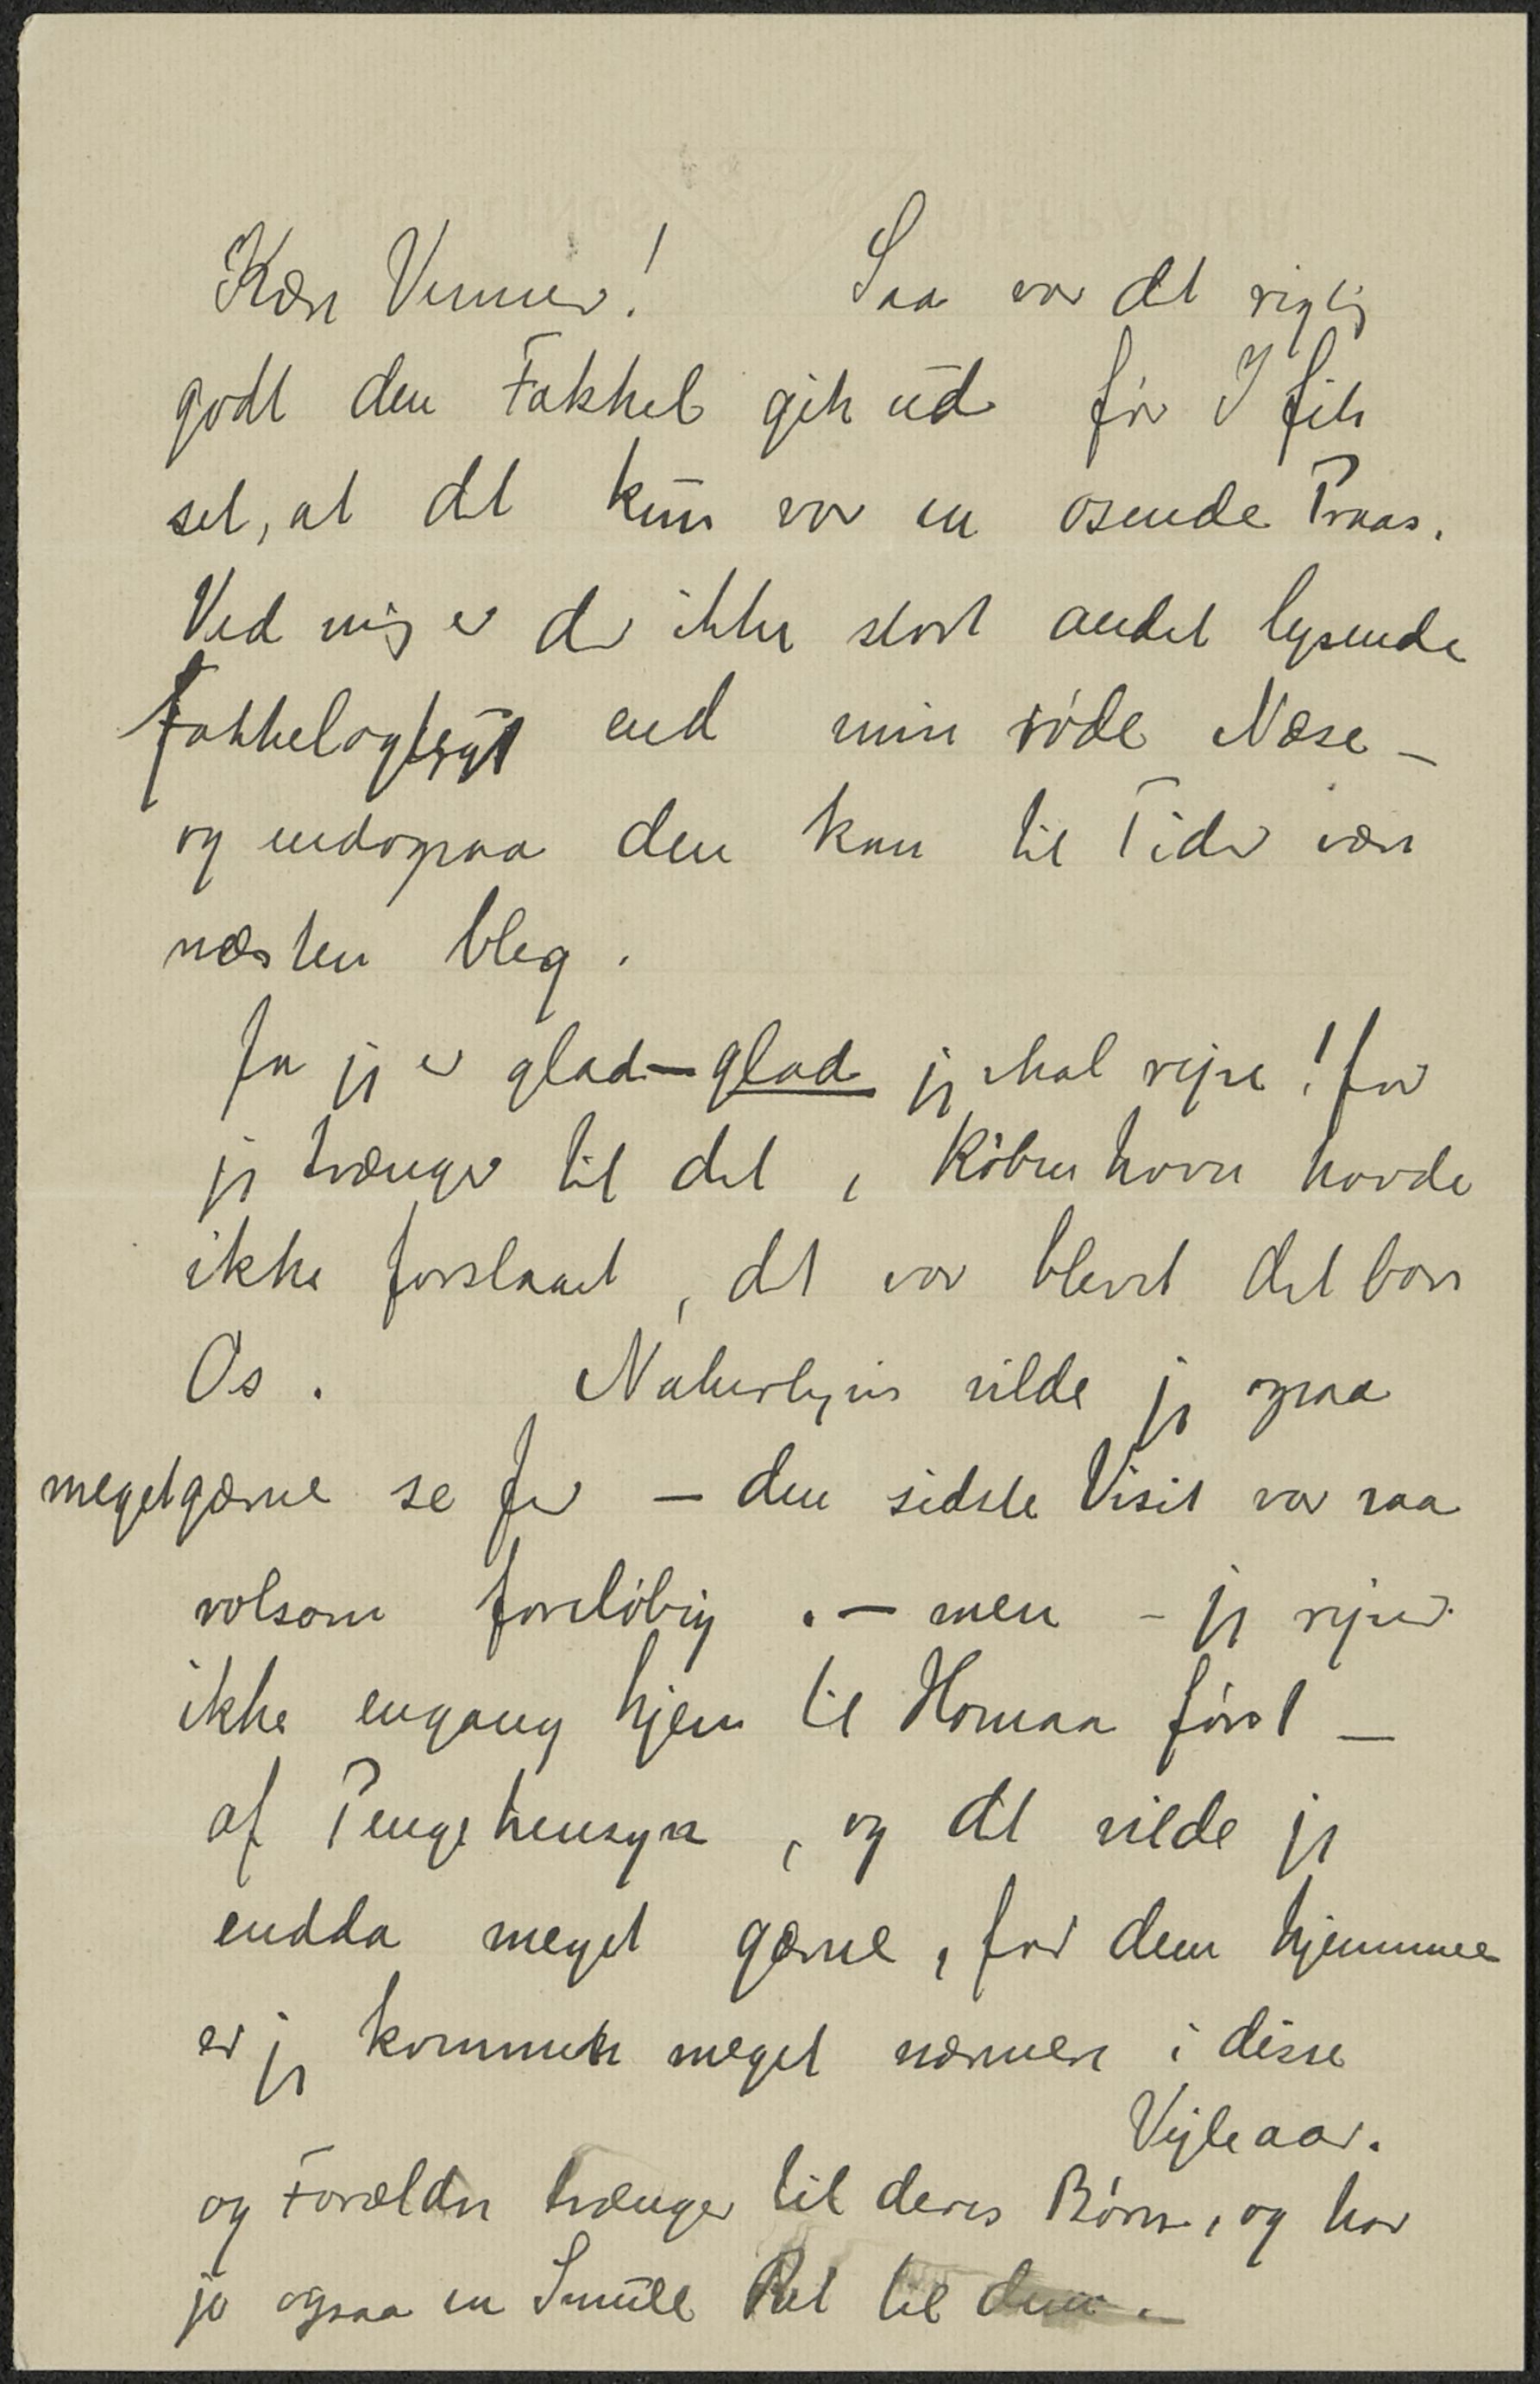 Kære Venner! Saa var det rigtig
godt den Fakkel gik ud før I fik
set, at det kun var en osende Praas.
Ved mig er der ikke stort andet lysende
Fakkelagtigt end min røde Næse –
og endogsaa den kan til Tider være
næsten bleg.
Ja jeg er glad – glad jeg skal rejse! for
jeg trænger til det, København havde
ikke forslaaet, det var blevet det bare
Os. Naturligvis vilde jeg ogsaa
meget gærne se Jer – den sidste Visit var saa
volsom foreløbig. – men – jeg rejser
ikke engang hjem til Homaa først –
af Pengehensyn, og det vilde jeg
endda meget gærne, for dem hjemme
er jeg kommen meget nærmere i disse
Vejleaar.
og Forældre trænger til deres Børn, og har
jo ogsaa en Smule Ret til dem. –